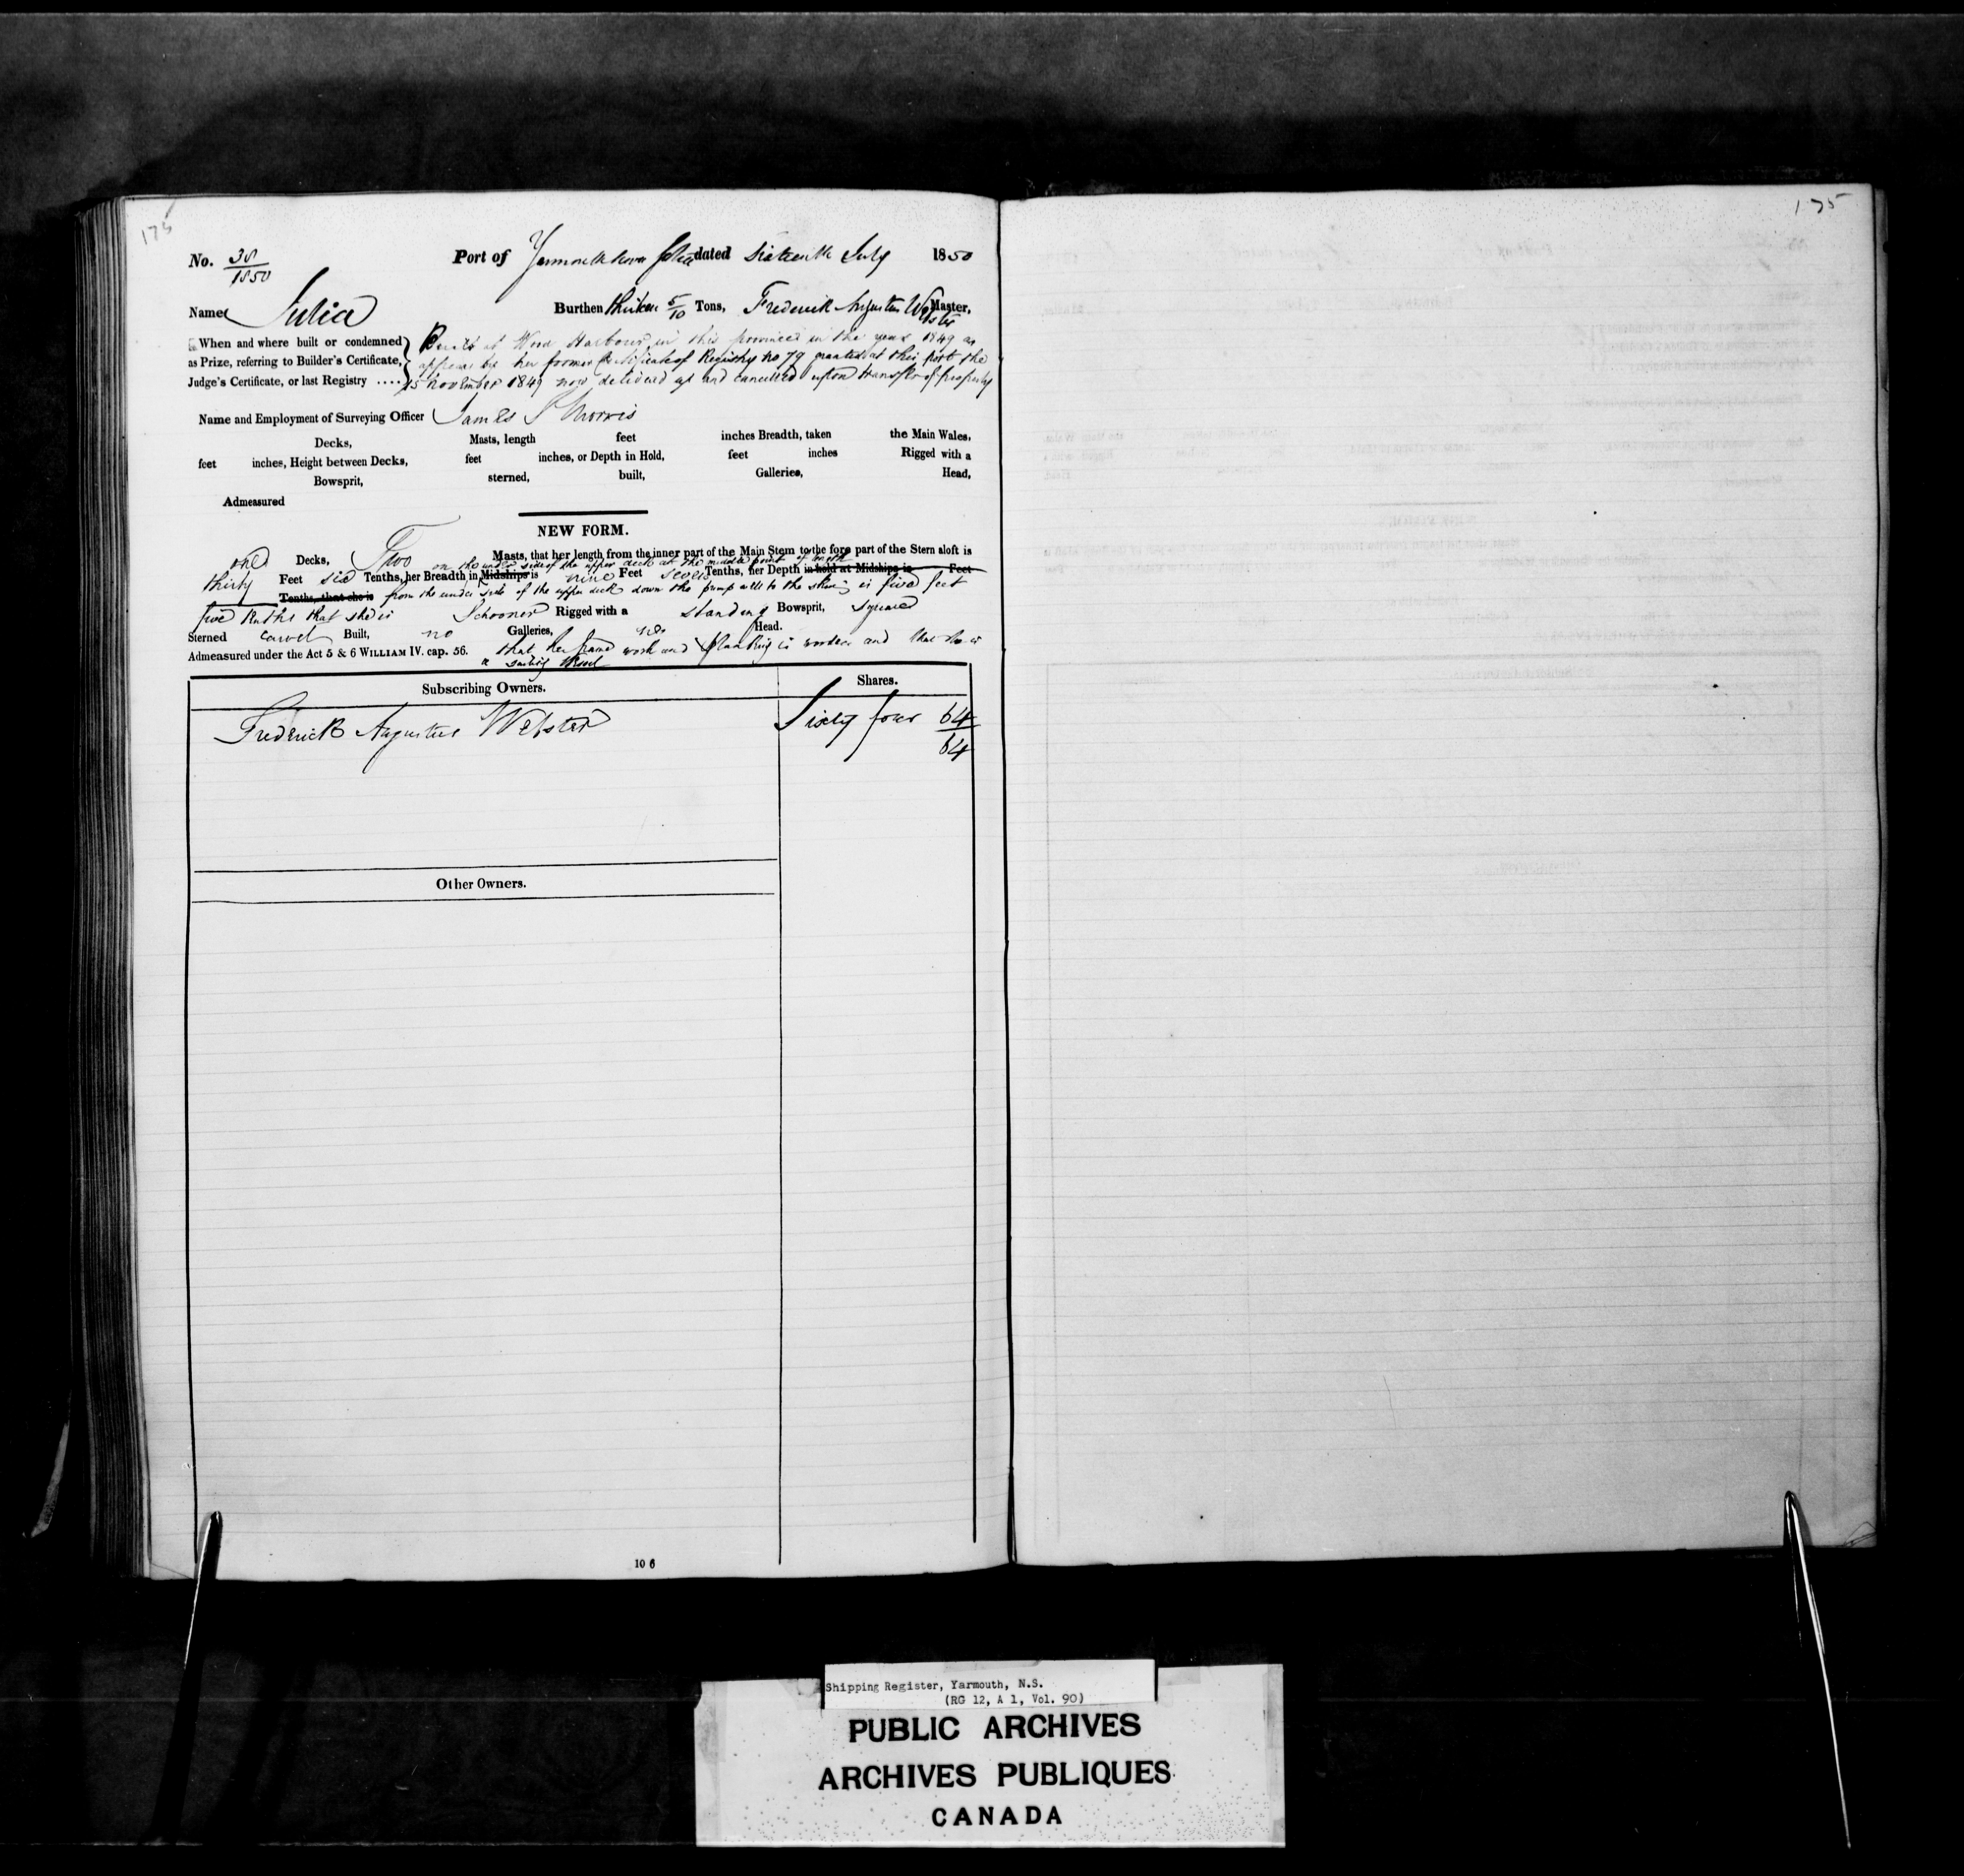 175
175
No. 38/1850 Port of Yarmouth Nova Scotia dated Sixteenth July 1850
Name Julia Burthen thirteen 5/10 Tons, Frederick Augustus Webster Master,
When and where built or condemned as Prize, referring to Builder's Certificate, Judge's Certificate, or last Registry ....
Built at Wood Harbour in this province in the year 1849 as
appears by her former Certificate of Registry no 79 granted at this port the
15 November 1849 now delivered up and cancelled upon transfer of property
Name and Employment of Surveying Officer James S Morris
Decks, Masts, length feet inches Breadth, taken the Main Wales,
feet inches, Height between Decks, feet inches, or Depth in Hold, feet inches Rigged with a
Bowsprit, sterned, built, Galleries, Head,
Admeasured
NEW FORM.
one Decks, Two Masts, that her length from the inner part of the Main Stem to the fore part of the Stern aloft is
on the under side of the upper deck at the middle point of length
thirty Feet six Tenths, her Breadth in Midships is nine Feet seven Tenths, her Depth in hold at Midships is Feet
Tenths, that she is from the under side of the upper deck down the pump well to the skin is five feet
five tenths that she is Schooner Rigged with a standing Bowsprit, square
Sterned carvel Built, no Galleries, no Head.
Admeasured under the Act 5 & 6 WILLIAM IV. cap. 56. that her frame work and planking is wooden and that she is
a sailing vessel
Subscribing Owners. Shares.
Frederick Augustus Webster Sixty four 64
64
Other Owners.
10 6
Shipping Register, Yarmouth, N.S.
(RG 12, A 1, Vol. 90)
PUBLIC ARCHIVES
ARCHIVES PUBLIQUES
CANADA